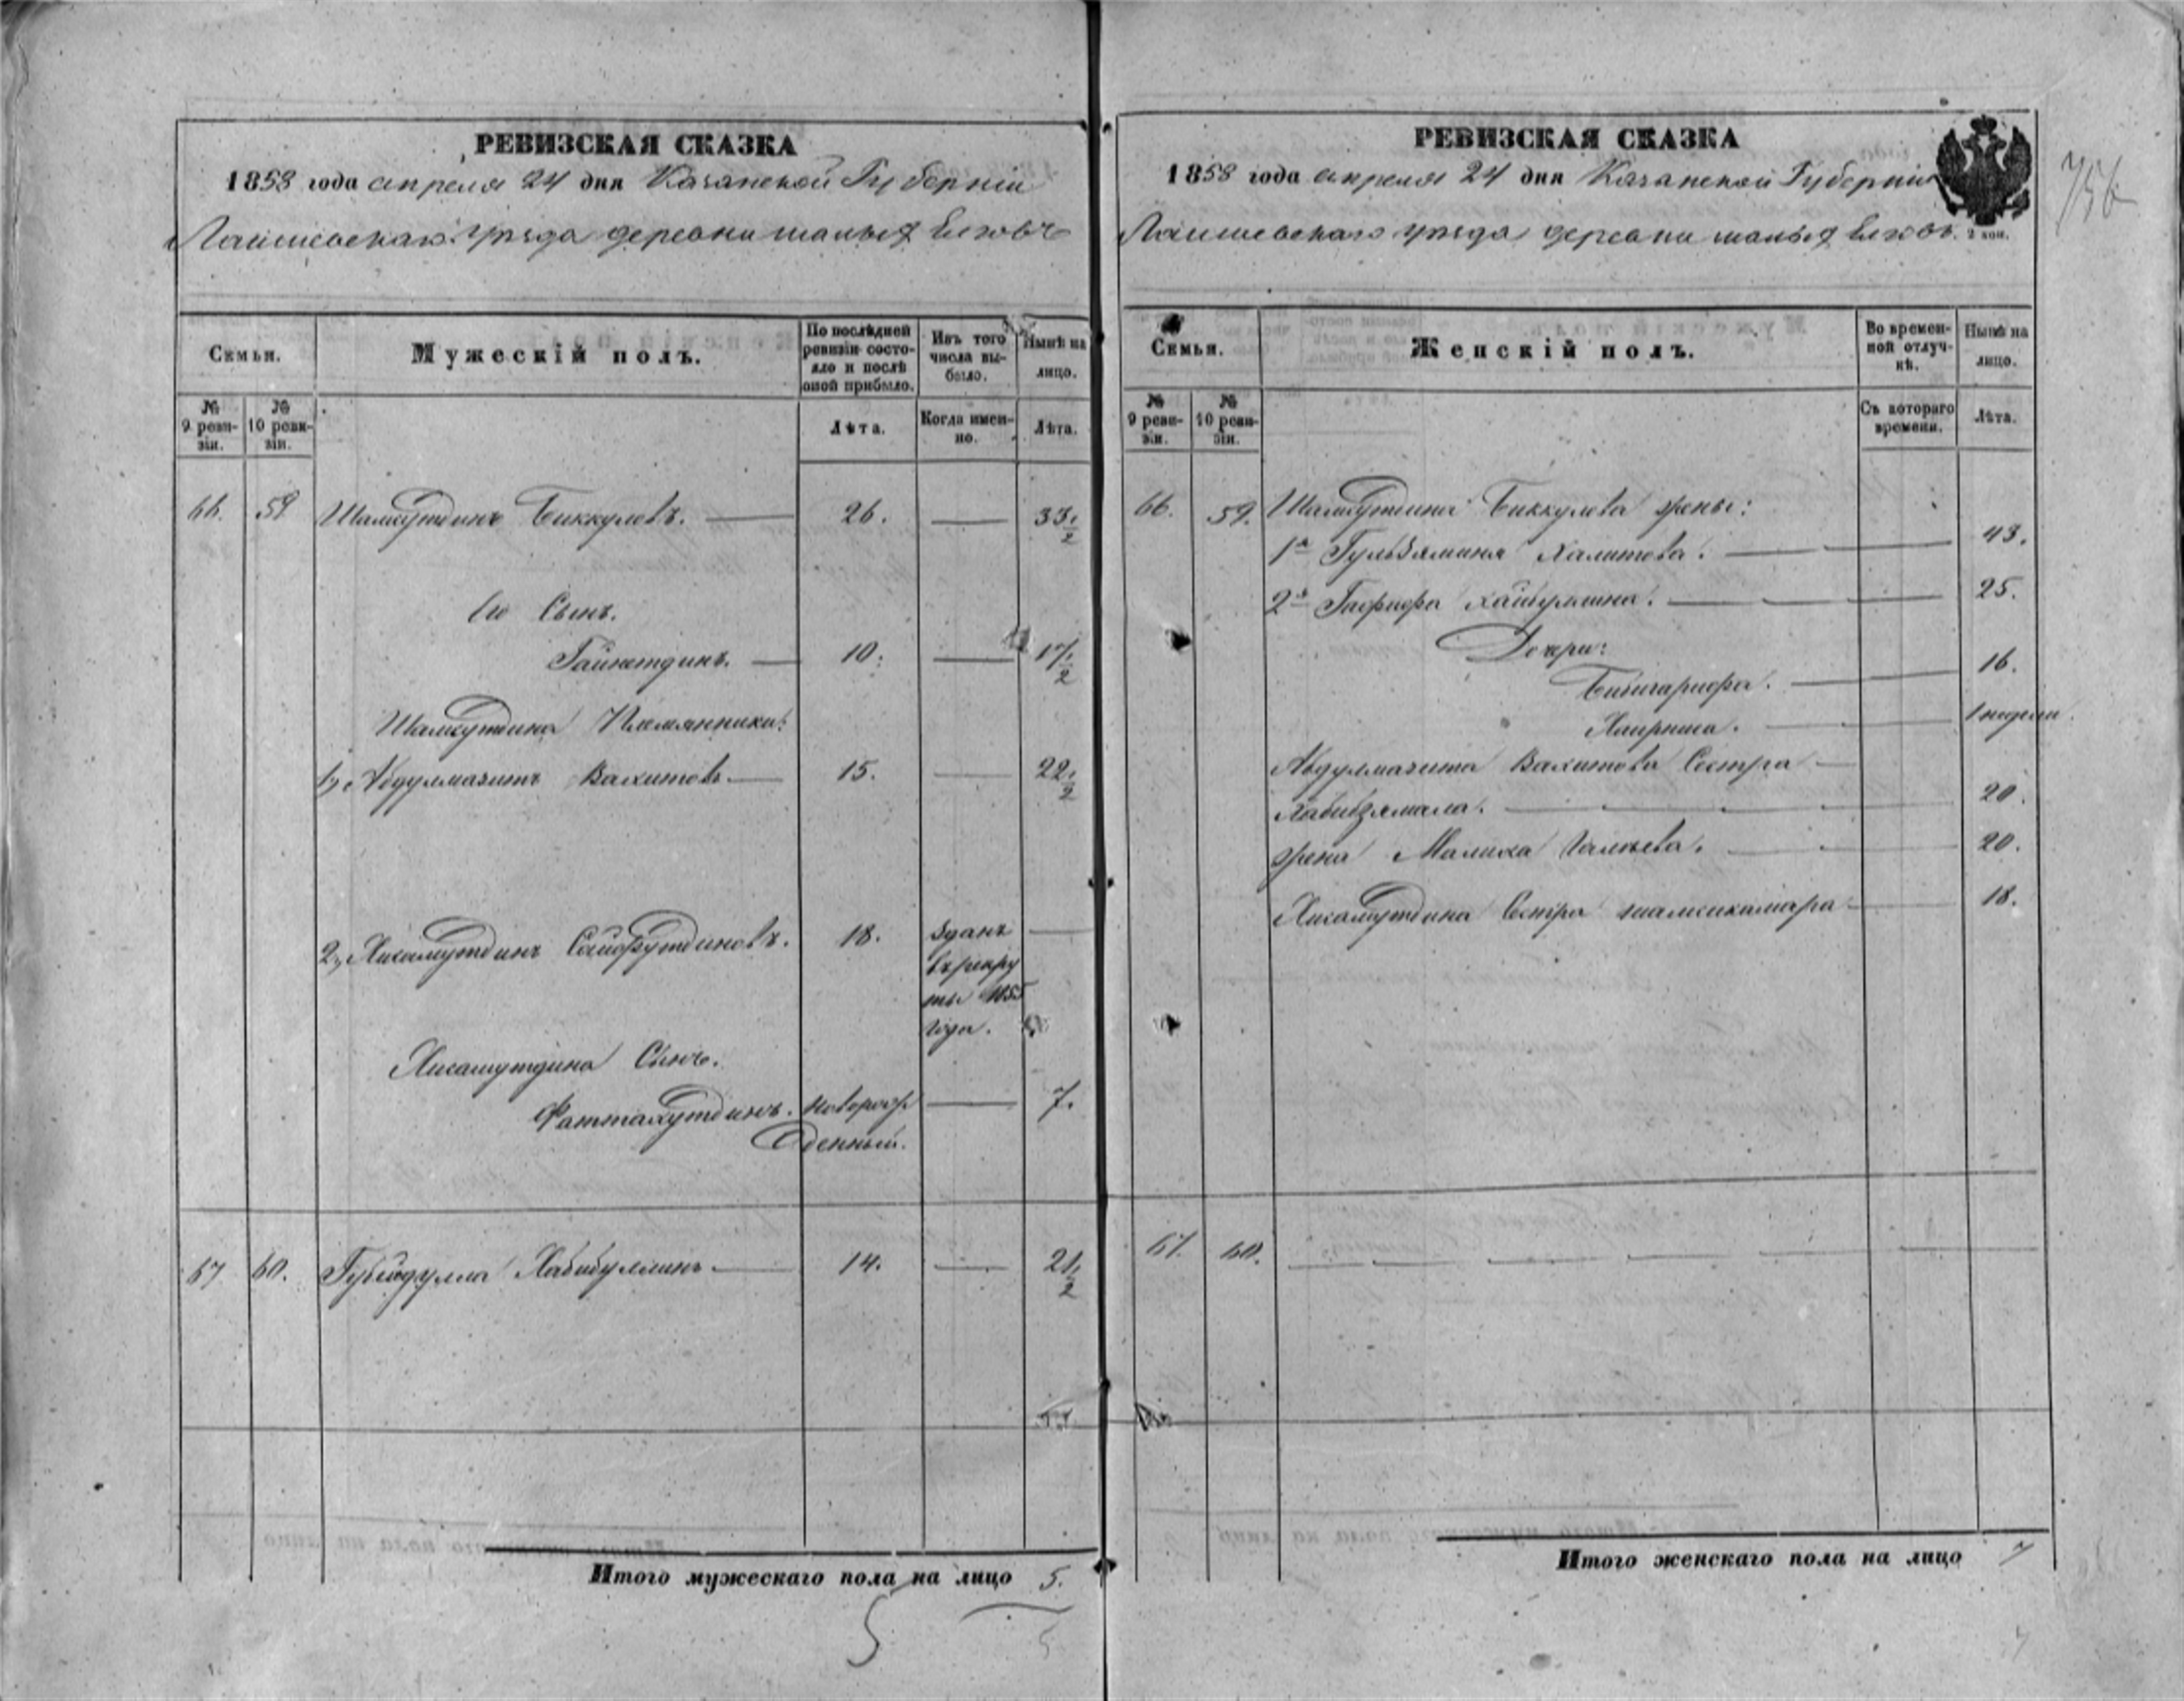 РЕВИЗСКАЯ СКАЗКА
1858 года апреля 24 дня Казанской Губерніи
Лаишевскаго уѣзда деревни малыхъ Елговъ
Семьи.
Мужескій полъ.
По послѣдней ревизіи состояло и послѣ оной прибыло.
Изъ того числа выбыло.
Нынѣ на лицо.
№ 9 ревизіи.
№ 10 ревизіи.
Лѣта.
Когда именно.
Лѣта.
66. 59 Шамсутдинъ Биккуловъ. 26. 33 1/2
Его Сынъ.
Гайнетдинъ. 10. 17 1/2
Шамсутдина Племянники:
1, Абдулмазитъ Вахитовъ. 15. 22 1/2
2, Хисамутдинъ Сайфутдиновъ. 18. зданъ
въ рекру
ты 1855
года.
Хисамутдина Сынъ.
Фаттахутдинъ. новорож 7.
денный.
67 60. Губейдулла Хабибуллинъ 14. 21 1/2
Итого мужескаго пола на лицо 5.
5
5
РЕВИЗСКАЯ СКАЗКА
1858 года апреля 24 дня Казанской Губерніи
Лаишевскаго уѣзда деревни малыхъ Елговъ.
2 коп.
756
Семьи.
Женскій полъ.
Во временной отлучкѣ.
Нынѣ на лицо.
№ 9 ревизіи.
№ 10 ревизіи.
Съ котораго времени.
Лѣта.
66. 59. Шамсутдина Биккулова жены:
1я Гульзяминя Халитова. 43.
2я Гафифа Хайбуллина. 25.
Дочери:
Бибигарифа. 16.
Хаирниса. 1 недели.
Абдулмазита Вахитова Сестра
Хабибзямала. 20.
жена Малика Галеева. 20.
Хисамутдина Сестра шамсикамара 18.
67. 60.
Итого женскаго пола на лицо 7
7